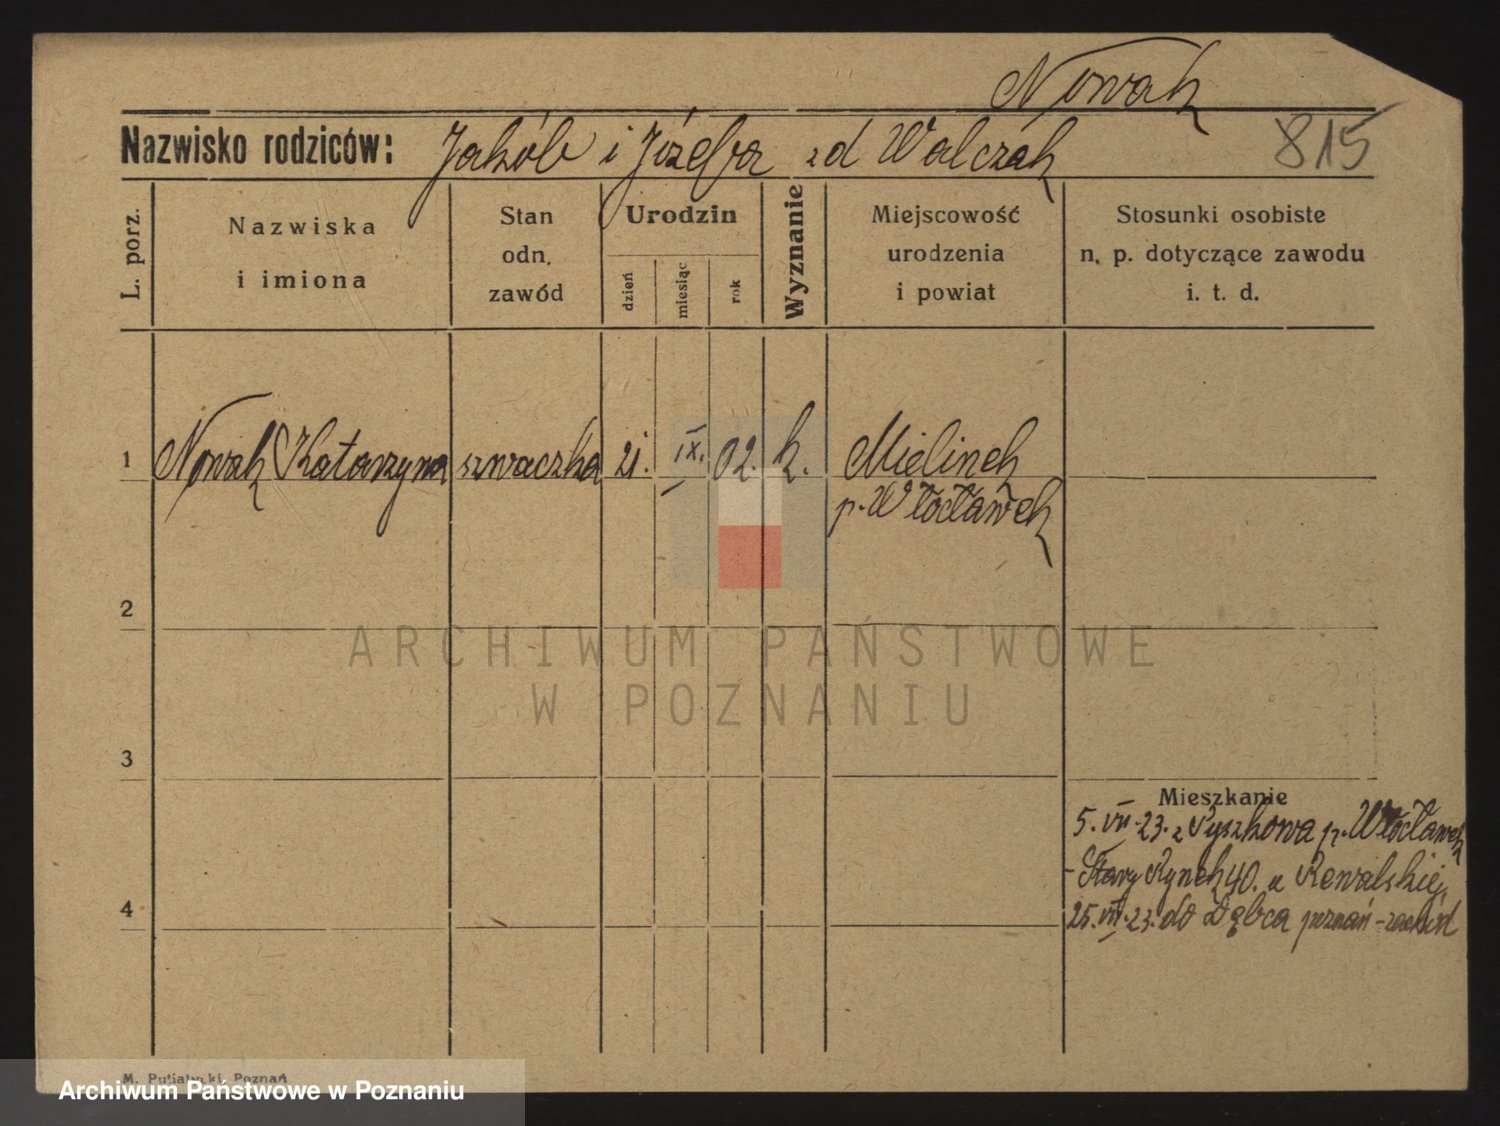 Nowak
Nazwisko rodziców: Jakób i Józefa z d Walczak 815
L. porz.
Nazwiska
i imiona
Stan
odn.
zawód
Urodzin
dzień
miesiąc
rok
Wyznanie
Miejscowość
urodzenia
i powiat
Stosunki osobiste
n. p. dotyczące zawodu
i. t. d.
1 Nowak Katarzyna szwaczka 21. IX. 02. k. Mielinek
p. Włocławek
2
ARCHIWUM PAŃSTWOWE
W POZNANIU
3
Mieszkanie
5. VII. 23. z Pyszkowa p. Włocławek
- Stary Rynek 40. u Kowalskiej
4
25. VII. 23. do Dębca poznań - zachód
M. Putiatycki, Poznań
Archiwum Państwowe w Poznaniu